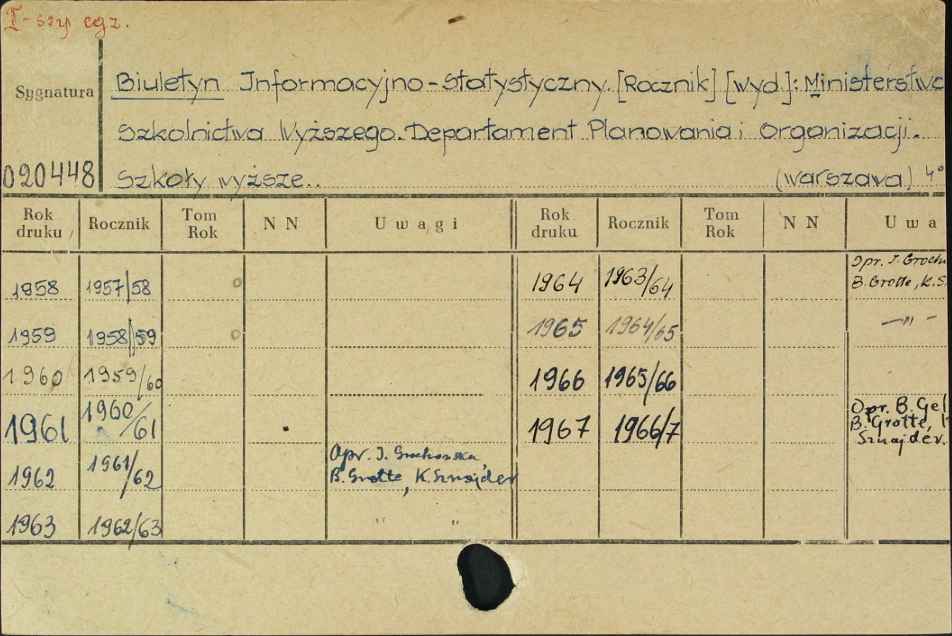 I-szy egz.
Sygnatura
Biuletyn Informacyjno-Statystyczny. [Rocznik] [wyd]: Ministerstwo
Szkolnictwa Wyższego. Departament Planowania i Organizacji.
020448 Szkoły wyższe.. (Warszawa) 4°
Rok druku Rocznik Tom Rok NN Uwagi Rok druku Rocznik Tom Rok NN Uwa
1958 1957/58 1964 1963/64 Opr. I. Groch
B. Grotte, K. S
1959 1958/59 1965 1964/65 —"—
1960 1959/60 1966 1965/66
1961 1960/61 1967 1966/7 Opr. B. Gel
B. Grotte,
Sznajder.
1962 1961/62 Opr. I. Grochowska
B. Grotte, K. Sznajder
1963 1962/63 " "